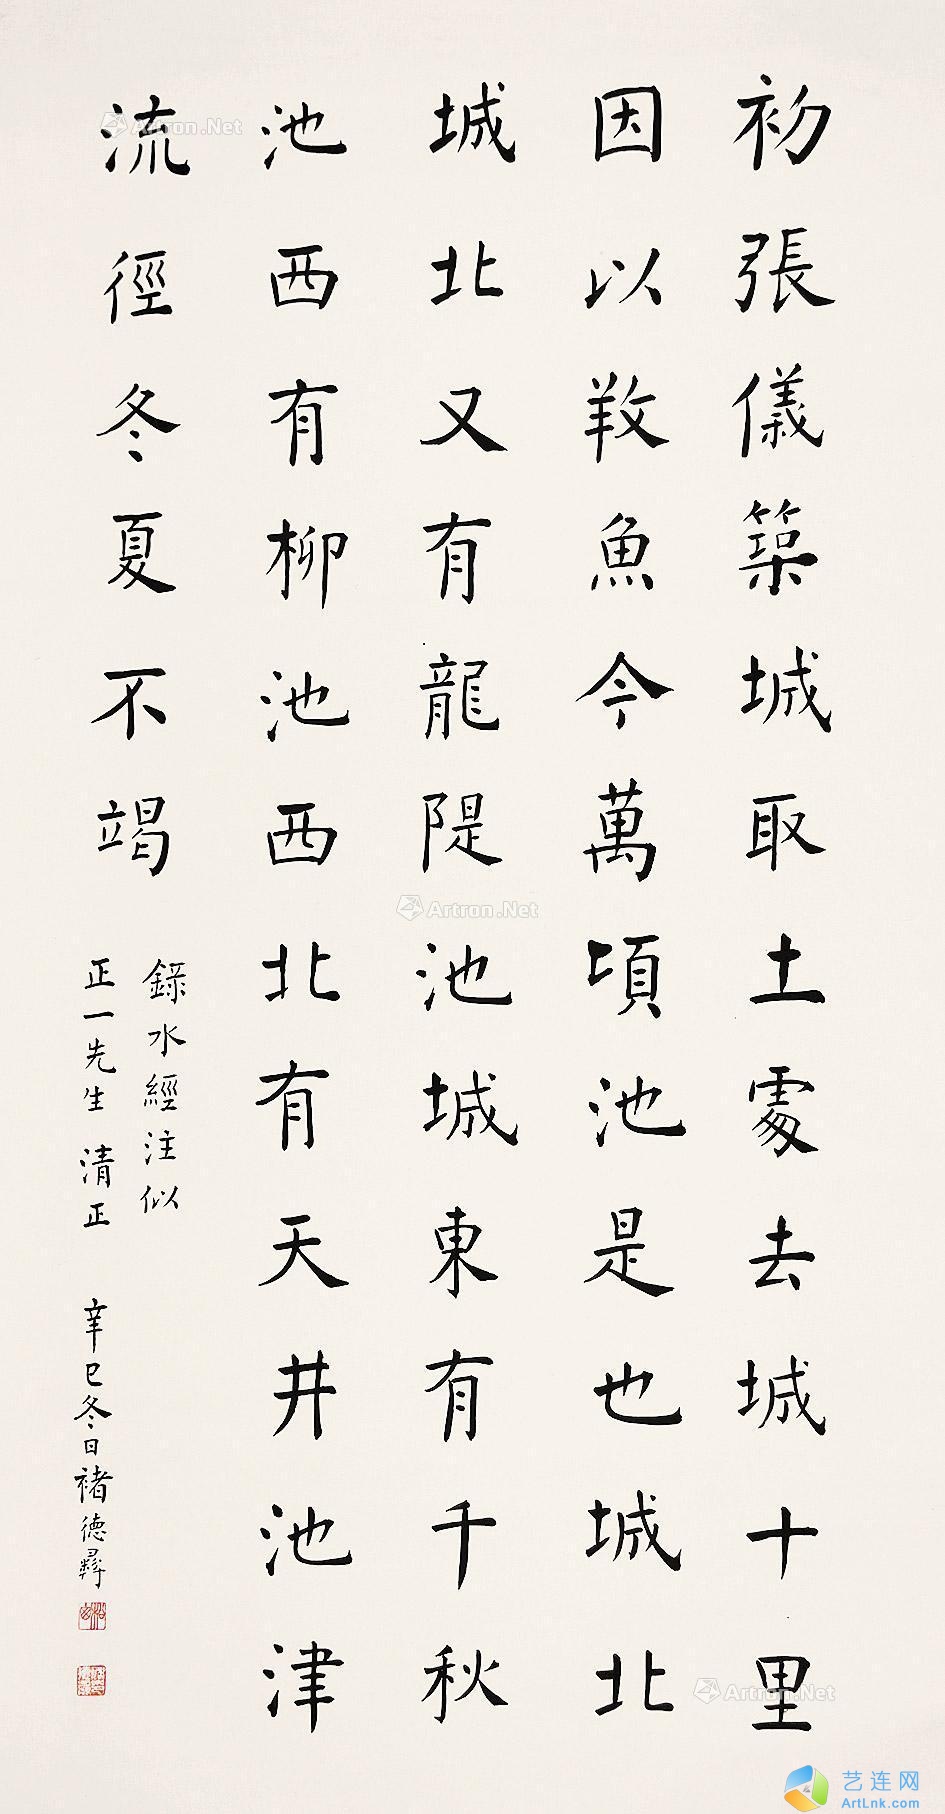 初張儀築城取土處去城十里
因以𢼝魚今萬頃池是也城北
城北又有龍隄池城東有千秋
池西有柳池西北有天井池津
流徑冬夏不竭
錄水經注似
正一先生 清正 辛巳冬日褚德彝
Artron.Net
Artron.Net
Artron.Net
艺连网
ArtLnk.com